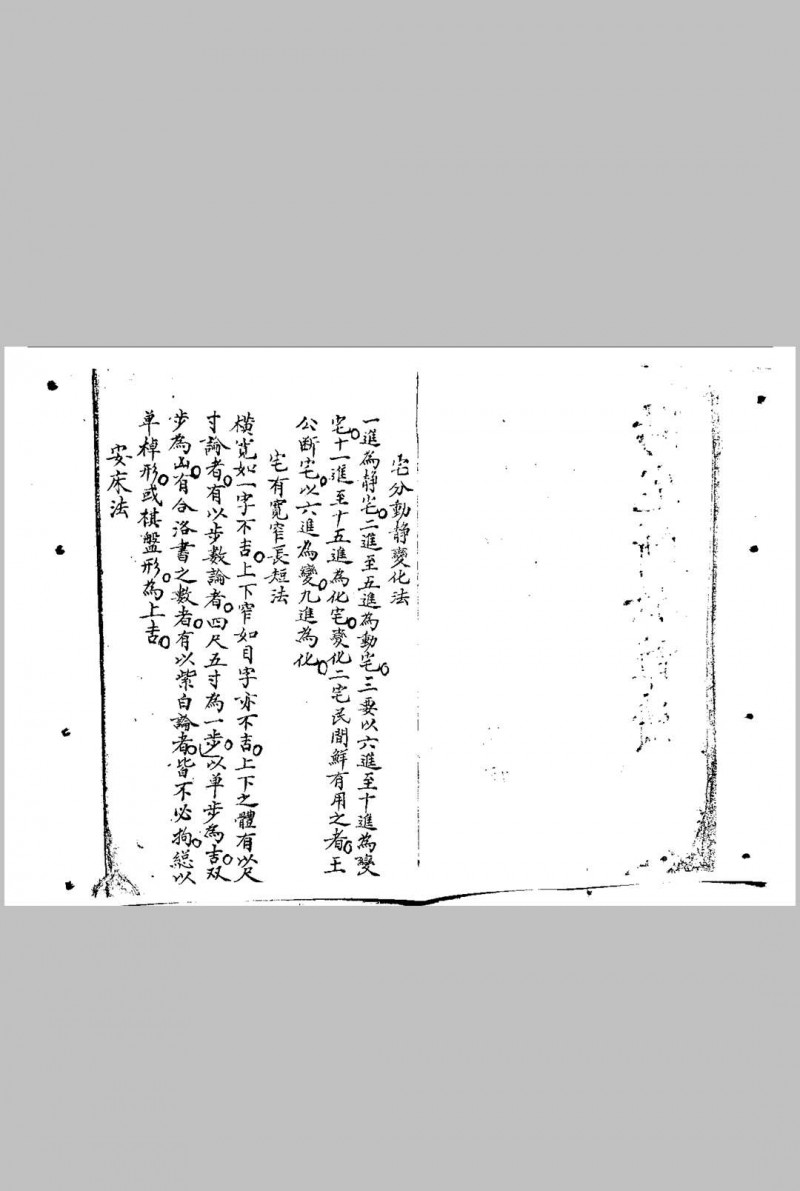 宅分動静變化法
一進為静宅。二進至五進為動宅。三要以六進至十進為變
宅。十一進至十五進為化宅。變化二宅民間鮮有用之者。王
公断宅。以六進為變。九進為化。
宅有寛窄長短法
橫寛如一字不吉。上下窄如目字亦不吉。上下之體有以尺
寸論者。有以步数論者。四尺五寸為一步。以单步為吉。双
步為凶。有合洛書之数者。有以紫白論者。皆不必拘。総以
单棹形。或棋盤形。為上吉。
安床法